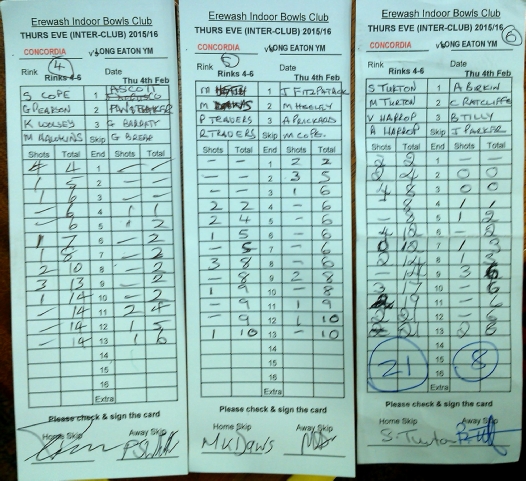 Erewash Indoor Bowls Club
THURS EVE (INTER-CLUB) 2015/16
CONCORDIA v's LONG EATON YM
Rink 4 Date
Rinks 4-6 Thu 4th Feb
S COPE 1 A SCOTT
G PEARSON 2
K WOOLSEY 3 G BARRATT
M HAWKINS Skip G BREAR
Shots Total End Shots Total
4 4 1 - -
1 5 2 - -
1 6 3 - -
- 6 4 1 1
- 6 5 1 2
1 7 6 - 2
1 8 7 - 2
2 10 8 - 2
3 13 9 - 2
1 14 10 - 2
- 14 11 2 4
- 14 12 1 5
- 14 13 1 6
14
15
16
Extra
Please check & sign the card
Home Skip Away Skip
Erewash Indoor Bowls Club
THURS EVE (INTER-CLUB) 2015/16
CONCORDIA v's LONG EATON YM
Rink 5 Date
Rinks 4-6 Thu 4th Feb
M 1 J FITZPATRICK
M 2 M HEELEY
P TREADERS 3 A PRICKARDS
R TRADERS Skip M COPE.
Shots Total End Shots Total
- - 1 2 2
- - 2 3 5
- - 3 1 6
2 2 4 - 6
2 4 5 - 6
1 5 6 - 6
- 5 7 - 6
3 8 8 - 6
- 8 9 2 8
1 9 10 - 8
- 9 11 1 9
- 9 12 1 10
1 10 13 - 10
14
15
16
Extra
Please check & sign the card
Home Skip Away Skip
M K Daws
Erewash Indoor Bowls Club
THURS EVE (INTER-CLUB) 2015/16 6
CONCORDIA v's LONG EATON YM
Rink Date
Rinks 4-6 Thu 4th Feb
S TURTON 1 A BIRKIN
M TURTON 2 C RATCLIFFE
V HARROP 3 B TILLY
A HARROP Skip J PARKER
Shots Total End Shots Total
2 2 1 - -
2 4 2 0 0
4 8 3 0 0
- 8 4 1 1
8 5 1 2
12 6 - 2
0 12 7 1 3
2 14 8 3
- 14 9 3 6
3 17 10 - 6
19 11 - 6
2 21 12 - 6
21 13 2 8
14
21 15 8
16
Extra
Please check & sign the card
Home Skip Away Skip
S. Turton